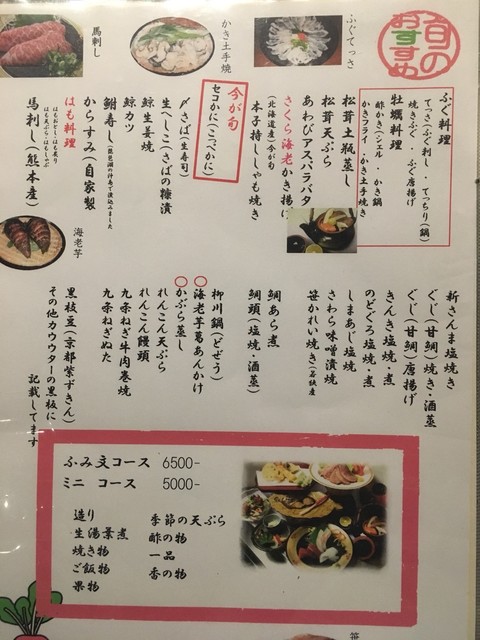 旬の
おすすめ
ふぐてっさ
かき土手焼
馬刺し
ふぐ料理
てっさ(ふぐ刺し)・てっちり(鍋)
焼きふぐ・ふぐ唐揚げ
牡蠣料理
酢かき(シェル)・かき鍋
かきフライ・かき土手焼き
松茸土瓶蒸し
松茸天ぷら
あわびアスパラバタ
さくら海老かき揚げ
(北海道産)今が旬
本子持ししゃも焼き
今が旬
セコかに(こっぺかに)
〆さば(生寿司)
生へしこ(さばの糠漬
鯨生姜焼
鯨カツ
鮒寿し(琵琶湖の沖島で漬込みました
からすみ(自家製
はも料理
はもおとし・はも炙り
はも天ぷら・はもしゃぶ
馬刺し(熊本産)
海老芋
新さんま塩焼き
ぐじ(甘鯛)焼き・酒蒸
ぐじ(甘鯛)唐揚げ
きんき塩焼・煮
のどぐろ塩焼・煮
しまあじ塩焼
さわら味噌漬焼
笹かれい焼き(若狭産
鯛あら煮
鯛頭(塩焼・酒蒸)
柳川鍋(どぜう)
〇海老芋葛あんかけ
〇かぶら蒸し
れんこん天ぷら
れんこん饅頭
九条ねぎ牛肉巻焼
九条ねぎぬた
黒枝豆(京都紫ずきん)
その他カウウターの黒板に
記載してます
ふみ文コース 6500-
ミニ コース 5000-
造り
生湯葉煮
焼き物
ご飯物
果物
季節の天ぷら
酢の物
一品
香の物
笹